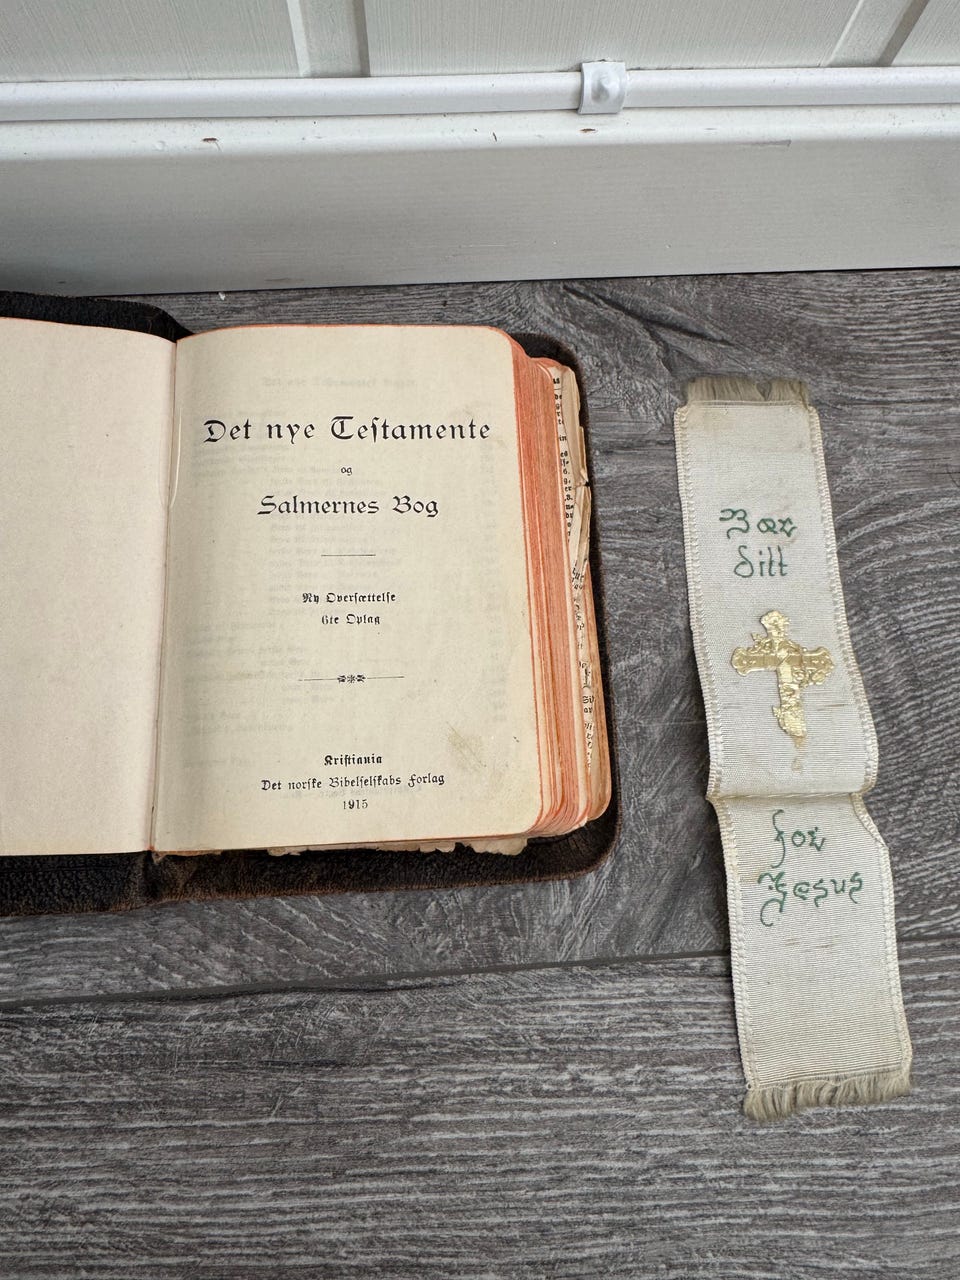 Det nye Testamente
og
Salmernes Bog
Ny Oversættelse
6te Oplag
Kristiania
Det norske Bibelselskabs Forlag
1915
Bær
ditt
for
Jesus